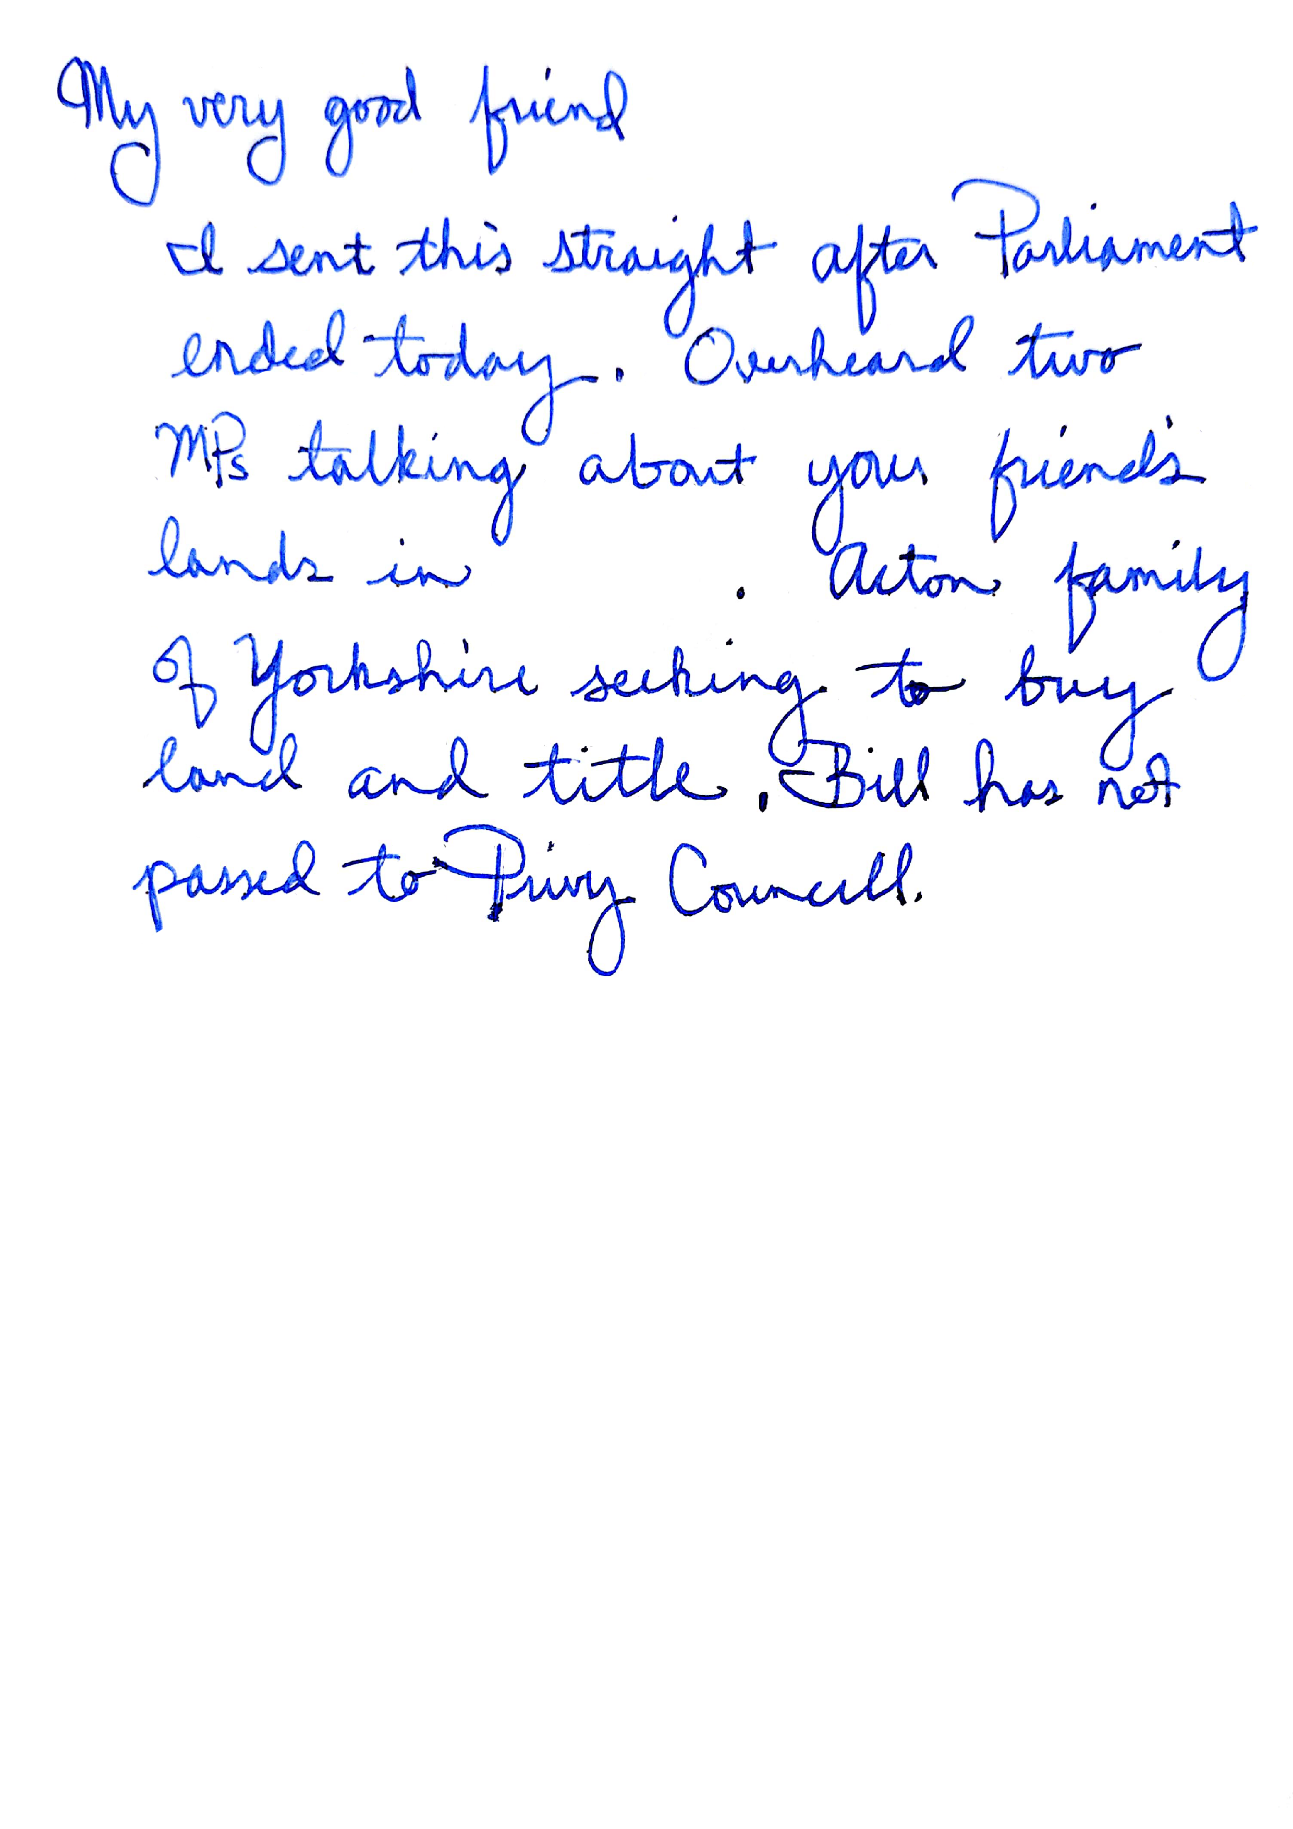 My very good friend
I sent this straight after Parliament
ended today. Overheard two
MPs talking about your friend's
lands in . Acton family
of Yorkshire seeking to buy
land and title. Bill has not
passed to Privy Councill.